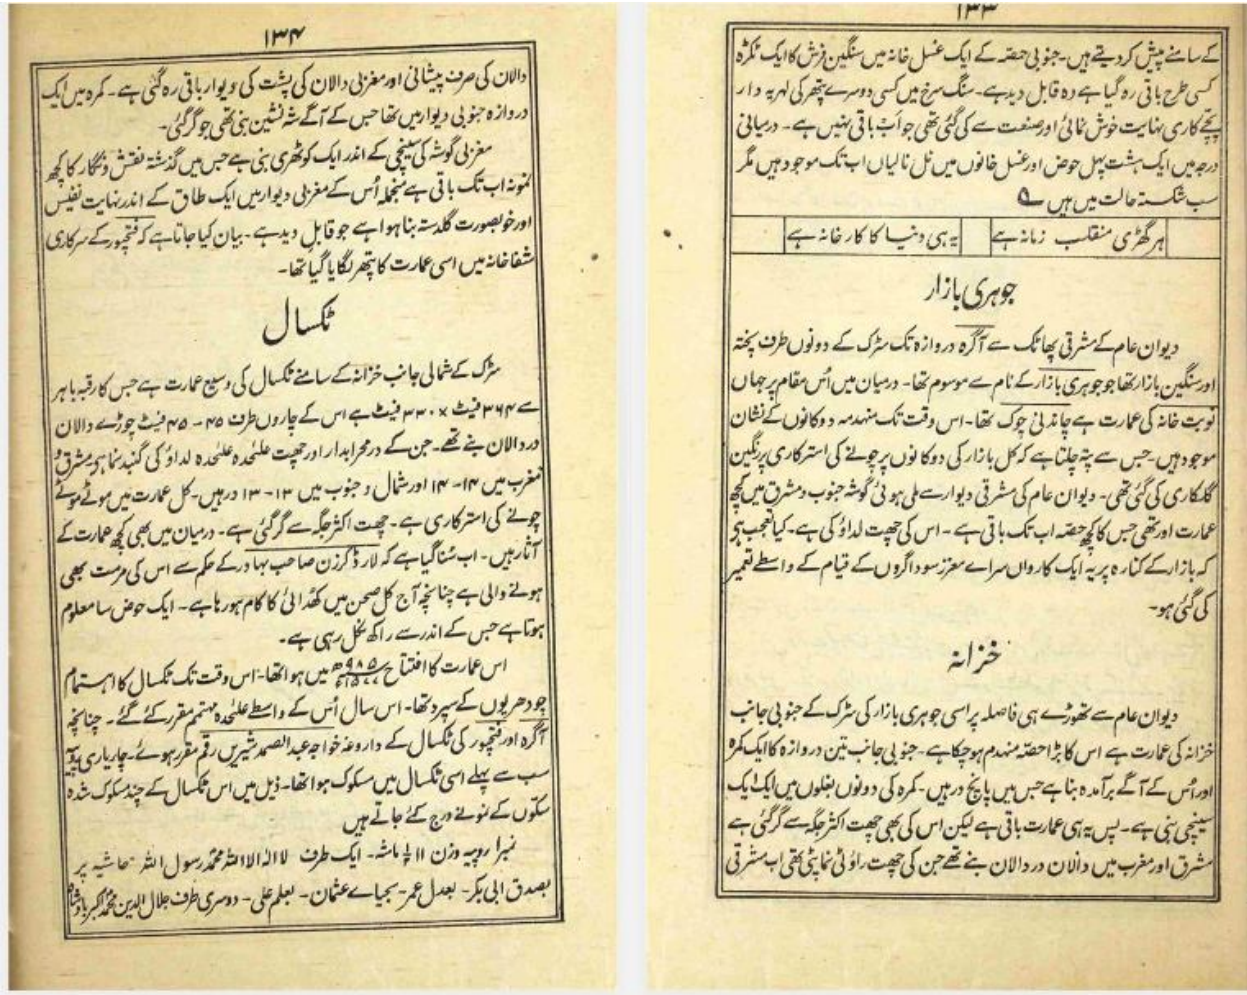 ۱۳۳
کے سامنے پیش کر دیتے ہیں۔ جنوبی حصہ کے ایک غسل خانہ میں سنگین فرش کا ایک ٹکڑہ
کسی طرح باقی رہ گیا ہے وہ قابل دید ہے۔ سنگ سرخ میں کسی دوسرے پتھر کی لہریہ دار
پچے کاری نہایت خوش نمائی اور صنعت سے کی گئی تھی جو اَب باقی نہیں ہے۔ درمیانی
درجہ میں ایک ہشت پہل حوض اور غسل خانوں میں نل نالیاں اب تک موجود ہیں مگر
سب شکستہ حالت میں ہیں ؎
ہر گھڑی منقلب زمانہ ہے یہ ہی دنیا کا کارخانہ ہے
جوہری بازار
دیوان عام کے مشرقی پھاٹک سے آگرہ دروازہ تک سڑک کے دونوں طرف پختہ
اور سنگین بازار تھا جو جوہری بازار کے نام سے موسوم تھا۔ درمیان میں اُس مقام پر جہاں
نوبت خانہ کی عمارت ہے چاندنی چوک تھا۔ اس وقت تک منہدمہ دوکانوں کے نشان
موجود ہیں۔ جس سے پتہ چلتا ہے کہ کل بازار کی دوکانوں پر چونے کی استرکاری پر رنگین
گلکاری کی گئی تھی۔ دیوان عام کی مشرقی دیوار سے ملی ہوئی گوشہ جنوب و مشرق میں کچھ
عمارت اور تھی جس کا کچھ حصہ اب تک باقی ہے۔ اس کی چھت لداؤ کی ہے۔ کیا تعجب ہی
کہ بازار کے کنارہ پر یہ ایک کارواں سراے معزز سوداگروں کے قیام کے واسطے تعمیر
کی گئی ہو۔
خزانہ
دیوان عام سے تھوڑے ہی فاصلہ پر اسی جوہری بازار کی سڑک کے جنوبی جانب
خزانہ کی عمارت ہے اس کا بڑا حصہ منہدم ہو چکا ہے۔ جنوبی جانب تین دروازہ کا ایک کمرہ
اور اُس کے آگے برآمدہ بنا ہے جس میں پانچ در ہیں۔ کمرہ کی دونوں بغلوں میں ایک ایک
سینچی بنی ہے۔ بس یہ ہی عمارت باقی ہے لیکن اس کی بھی چھت اکثر جگہ سے گر گئی ہے
مشرق اور مغرب میں دالان در دالان بنے تھے جن کی چھت راؤٹی نما پٹی تھی اب مشرقی
۱۳۴
دالان کی صرف پیشانی اور مغربی دالان کی پشت کی دیوار باقی رہ گئی ہے۔ کمرہ میں ایک
دروازہ جنوبی دیوار میں تھا جس کے آگے شہ نشین بنی تھی جو گر گئی۔
مغربی گوشہ کی سینچی کے اندر ایک کوٹھری بنی ہے جس میں گذشتہ نقش و نگار کا کچھ
نمونہ اب تک باقی ہے منجملہ اُس کے مغربی دیوار میں ایک طاق کے اندر نہایت نفیس
اور خوبصورت گلدستہ بنا ہوا ہے جو قابل دید ہے۔ بیان کیا جاتا ہے کہ فتحپور کے سرکاری
شفاخانہ میں اسی عمارت کا پتھر لگایا گیا تھا۔
ٹکسال
سڑک کے شمالی جانب خزانہ کے سامنے ٹکسال کی وسیع عمارت ہے جس کا رقبہ باہر
سے ۳۶۴ فیٹ × ۳۳۰ فیٹ ہے اس کے چاروں طرف ۴۵ - ۴۵ فیٹ چوڑے دالان
در دالان بنے تھے۔ جن کے در محرابدار اور چھت علٰحدہ علٰحدہ لداؤ کی گنبد نما ہی مشرق و
مغرب میں ۱۴ - ۱۴ اور شمال و جنوب میں ۱۳ - ۱۳ در ہیں۔ کل عمارت میں موٹے موٹے
چونے کی استرکاری ہے۔ چھت اکثر جگہ سے گر گئی ہے۔ درمیان میں بھی کچھ عمارت کے
آثار ہیں۔ اب سُنا گیا ہے کہ لارڈ کرزن صاحب بہادر کے حکم سے اس کی مرمت بھی
ہونے والی ہے چنانچہ آج کل صحن میں کھدائی کا کام ہو رہا ہے۔ ایک حوض سا معلوم
ہوتا ہے جس کے اندر سے راکھ نکل رہی ہے۔
اس عمارت کا افتتاح ۹۸۵ھ ۱۵۷۷ء میں ہوا تھا۔ اس وقت تک ٹکسال کا اہتمام
چودھریوں کے سپرد تھا۔ اس سال اُس کے واسطے علٰحدہ مہتمم مقرر کئے گئے۔ چنانچہ
آگرہ اور فتحپور کی ٹکسال کے داروغہ خواجہ عبدالصمد شیریں رقم مقرر ہوئے۔ چاریاری روپیہ
سب سے پہلے اسی ٹکسال میں مسکوک ہوا تھا۔ ذیل میں اس ٹکسال کے چند مسکوک شدہ
سکّوں کے نمونے درج کئے جاتے ہیں
نمبر۱ روپیہ وزن ماشہ۔ ایک طرف لا الٰہ الا اللہ محمد رسول اللہ حاشیہ پر
بصدق ابی بکر۔ بعدل عمر۔ بحیاے عثمان۔ بعلم علی۔ دوسری طرف جلال الدین محمد اکبر بادشاہ